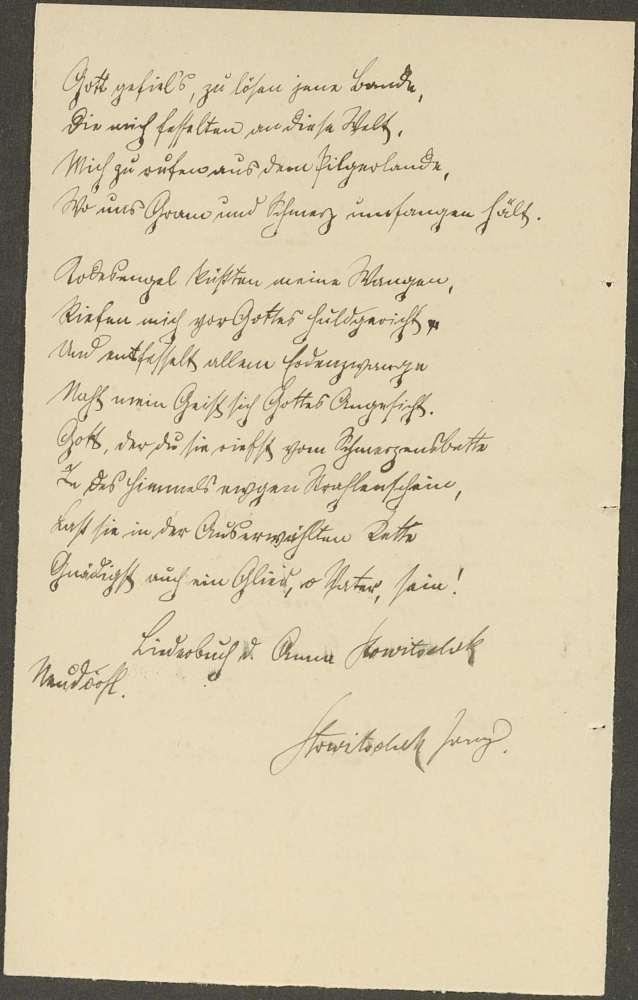 Gott gefiel's, zu lösen jene Bande,
Die mich fesselten an diese Welt,
Mich zu rufen aus dem Pilgerlande,
Wo uns Gram und Schmerz umfangen hält.
Todesengel küßten meine Wangen,
Riefen mich vor Gottes Huldgericht,
Und entfesselt allem Erdenzwange
Naht mein Geist sich Gottes Angesicht.
Gott, der du sie riefst vom Schmerzensbette
In des Himmels ewgen Strahlenschein,
Laß sie in der Auserwählten Kette
Gnädigst auch ein Glied, o Vater, sein!
Liederbuch d. Anna
Neudörfl.